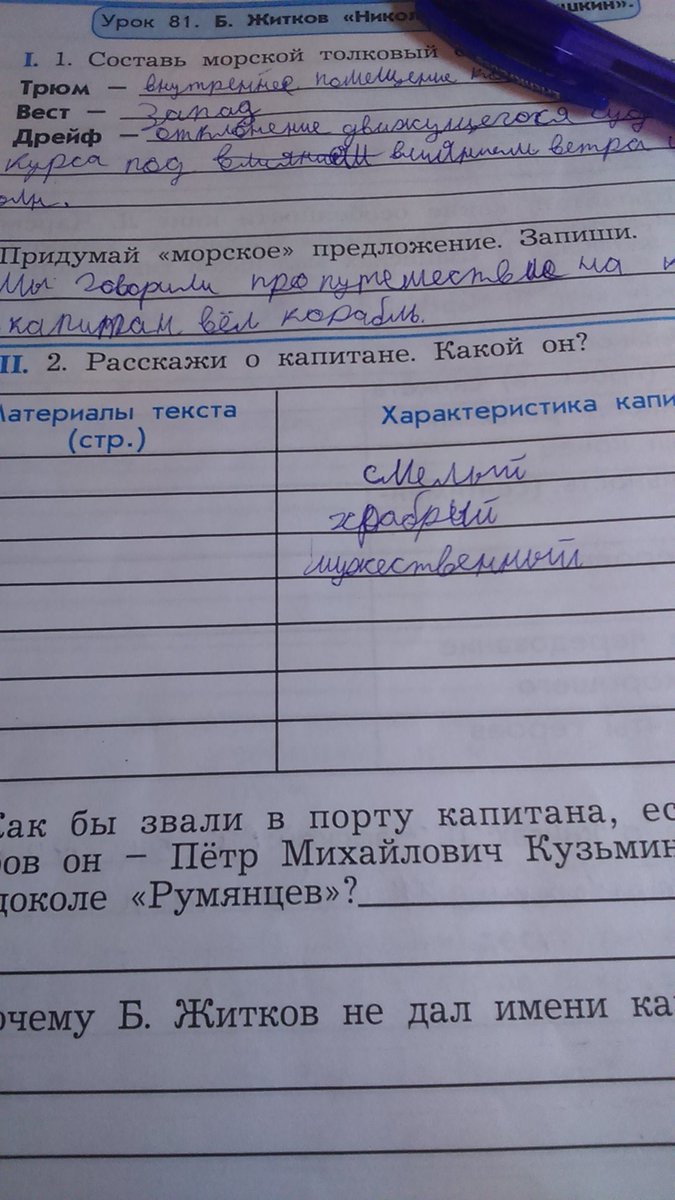 Урок 81. Б. Житков «Никол шкин».
I. 1. Составь морской толковый
Трюм — внутреннее помещение
Вест — запад
Дрейф — отклонение движущегося суд
курса под влиянием ветра и
олн.
Придумай «морское» предложение. Запиши.
Мы говорили про путешествие на к
капитан вёл корабль.
II. 2. Расскажи о капитане. Какой он?
Материалы текста
(стр.)
Характеристика капи
смелый
храбрый
мужественный
Как бы звали в порту капитана, ес
ов он – Пётр Михайлович Кузьмин
доколе «Румянцев»?
очему Б. Житков не дал имени ка